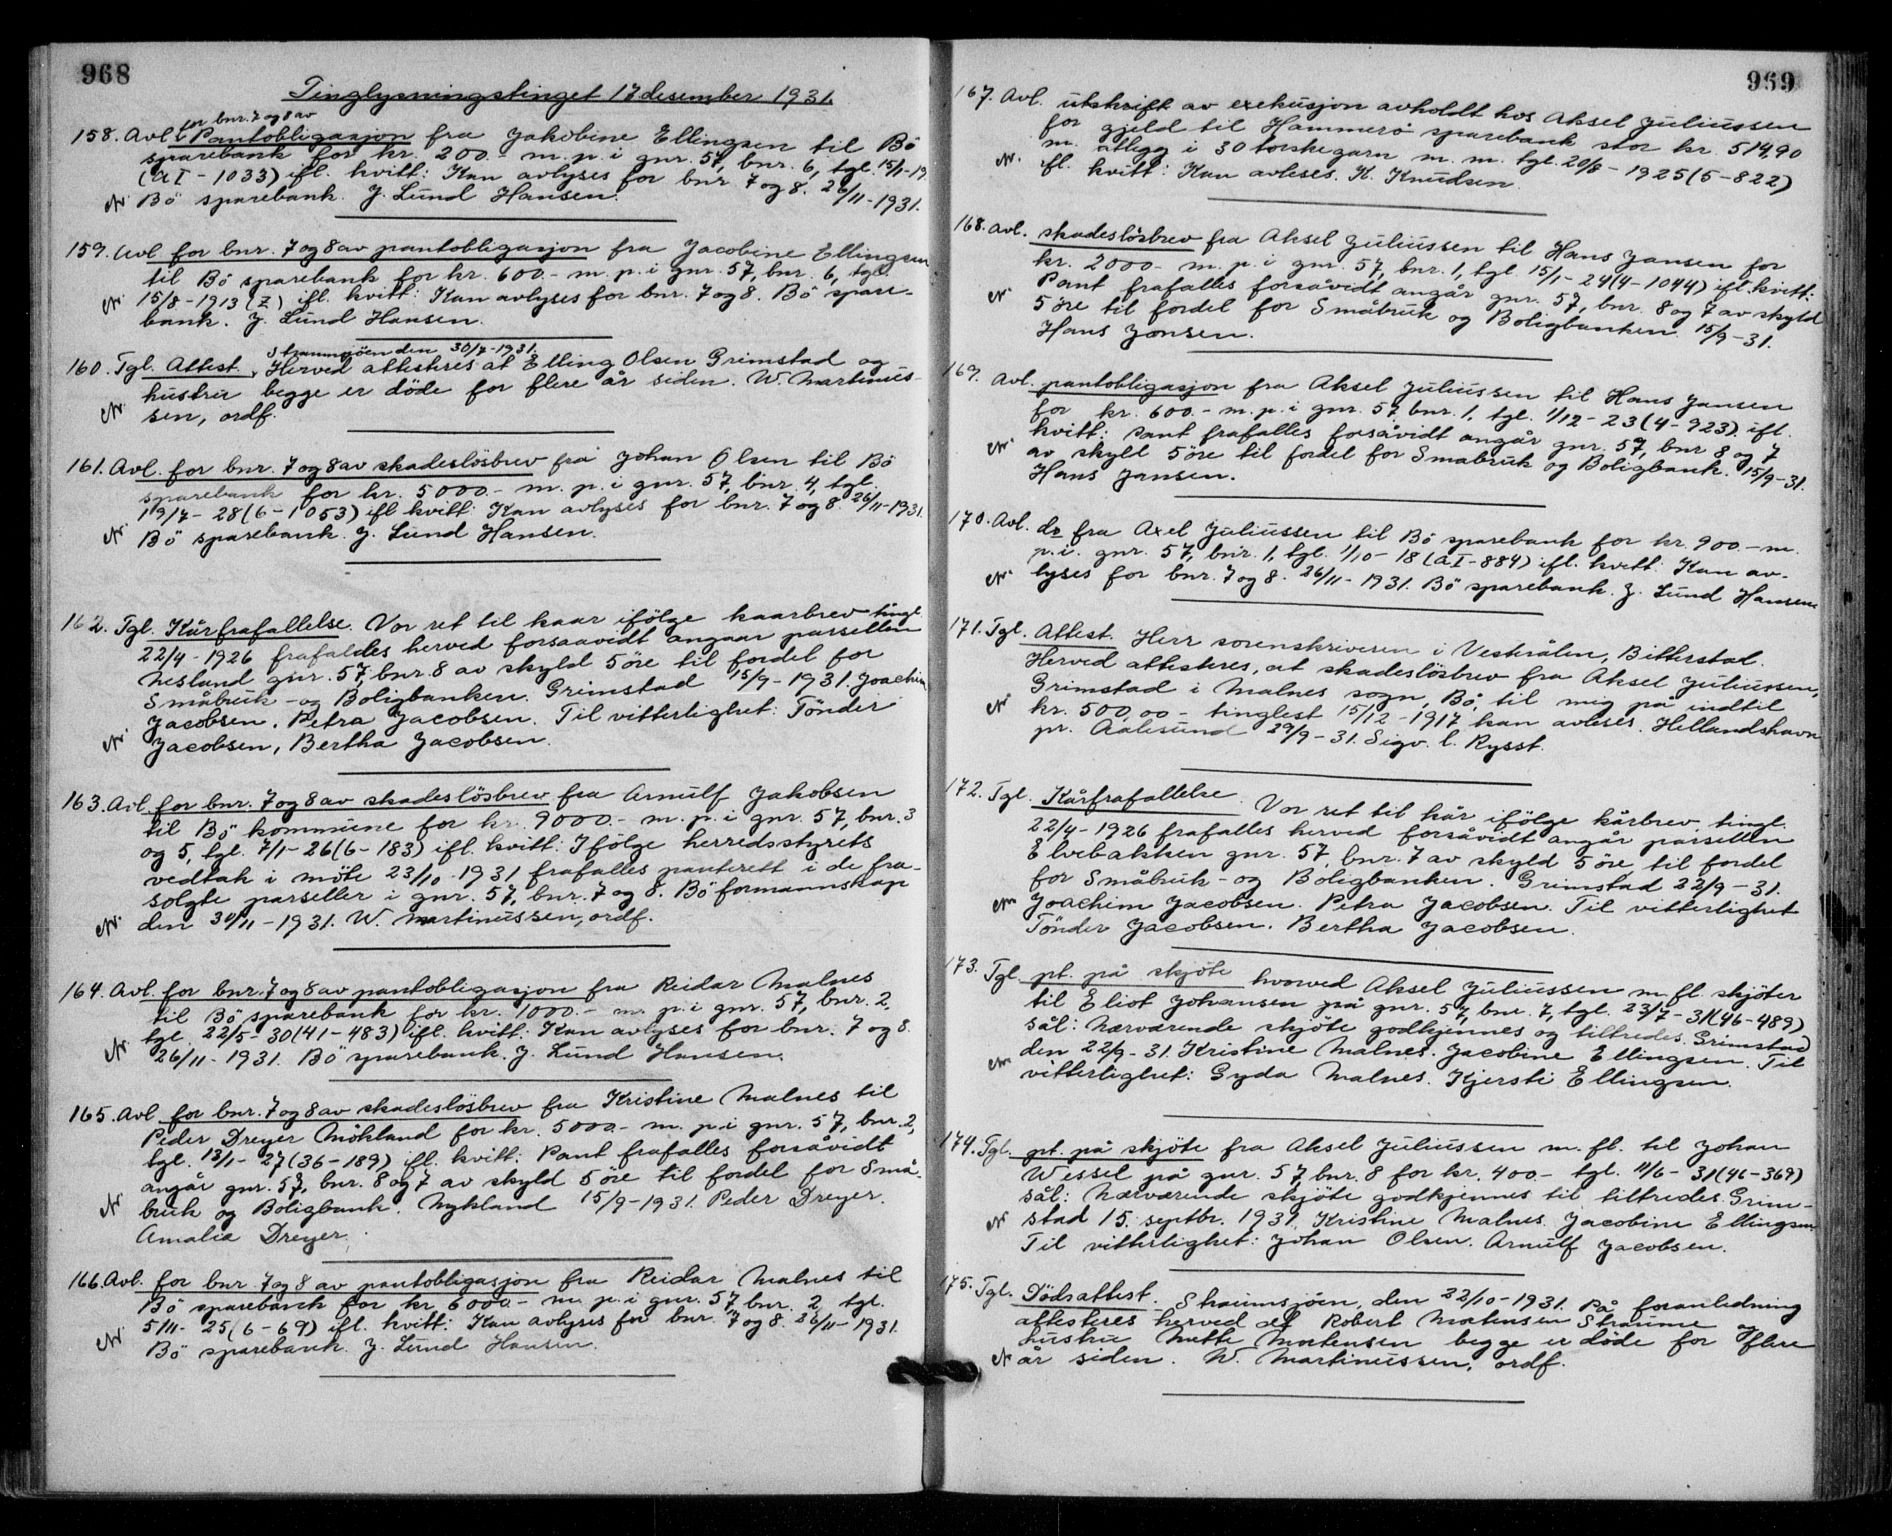 968
Tinglysningstinget 17 desember 1931.
for bnr. 7 og 8 av
158. Avl. Pantobligasjon fra Jakobine Ellingsen til Bö
sparebank for kr. 200.- m. p. i gnr. 57, bnr. 6, tgl. 15/11-19
(a I - 1033) ifl. kvitt: Kan avlyses for bnr 7 og 8. 26/11-1931.
Bö sparebank. J. Lund Hansen.
159. Avl for bnr. 7 og 8 av pantobligasjon fra Jacobine Ellingsen
til Bö sparebank for kr. 600.- m. p. i gnr. 57, bnr. 6, tgl.
15/8-1913 (Z) ifl. kvitt: Kan avlyses for bnr. 7 og 8. Bö spare-
bank. J. Lund Hansen.
Straumsjöen den 30/7-1931.
160. Tgl. Attest. Herved attesteres at Elling Olsen Grimstad og
hustru begge er döde for flere år siden. W. Martinus-
sen, ordf.
161. Avl. for bnr. 7 og 8 av skadeslösbrev fra Johan Olsen til Bö
sparebank for kr. 5000.- m. p. i gnr. 57, bnr. 4, tgl.
19/7-28 (6-1053) ifl kvitt: Kan avlyses for bnr. 7 og 8. 26/11-1931.
Bö sparebank. J. Lund Hansen.
162. Tgl. Kårfrafallelse. Vor ret til kaar ifölge kaarbrev tingl.
22/4-1926 frafaldes herved forsaavidt angaar parsellen
Nesland gnr. 57, bnr. 8 av skyld 5 öre til fordel for
Småbruk- og Boligbanken. Grimstad 15/9-1931. Joachim
Jacobsen. Petra Jacobsen. Til vitterlighet: Tönder
Jacobsen, Bertha Jacobsen.
163. Avl for bnr. 7 og 8 av skadeslösbrev fra Arnulf Jakobsen
til Bö kommune for kr. 9000.- m. p. i gnr. 57, bnr. 3
og 5, tgl. 7/1-26 (6-183) ifl. kvitt: Ifölge herredsstyrets
vedtak i möte 23/10-1931 frafalles panterett i de fra-
solgte parseller i gnr. 57, bnr. 7 og 8. Bö formannskap
den 30/11-1931. W. Martinussen, ordf.
164. Avl. for bnr. 7 og 8 av pantobligasjon fra Reidar Malnes
til Bö sparebank for kr. 1000.- m. p. i gnr. 57, bnr. 2,
tgl. 22/5-30 (41-483) ifl. kvitt: Kan avlyses for bnr. 7 og 8.
26/11-1931. Bö sparebank. J. Lund Hansen.
165. Avl for bnr. 7 og 8 av skadeslösbrev fra Kristine Malnes til
Peder Dreyer Mökland for kr. 5000.- m. p. i gnr. 57, bnr. 2,
tgl. 13/1-27 (36-189) ifl. kvitt: Pant frafalles forsåvidt
angår gnr. 57, bnr. 8 og 7 av skyld 5 öre til fordel for Små-
bruk og Boligbank. Mykland 15/9-1931. Peder Dreyer.
Amalia Dreyer.
166. Avl. for bnr. 7 og 8 av pantobligasjon fra Reidar Malnes til
Bö sparebank for kr. 6000.- m. p. i gnr. 57, bnr. 2, tgl.
5/11-25 (6-69) ifl. kvitt: Kan avlyses for bnr. 7 og 8. 26/11-1931.
Bö sparebank. J. Lund Hansen.
969
167. Avl. utskrift av exekusjon avholdt hos Aksel Juliussen
for gjeld til Hammerö sparebank stor kr. 514,90
m. utlegg i 30 torskegarn m. m. tgl. 20/8-1925 (5-822)
ifl. kvitt: Kan avleses. K. Knudsen.
168. Avl. skadeslösbrev fra Aksel Juliussen til Hans Jansen for
kr. 2000.- m. p. i gnr. 57, bnr. 1, tgl. 15/1-24 (4-1044) ifl. kvitt:
Pant frafalles forsåvidt angår gnr. 57, bnr. 8 og 7 av skyld
5 öre til fordel for Småbruk og Boligbanken. 15/9-31.
Hans Jansen.
169. Avl. pantobligasjon fra Aksel Juliussen til Hans Jansen
for kr. 600.- m. p. i gnr. 57 bnr. 1, tgl. 1/12-23 (4-923) ifl.
kvitt: Pant frafalles forsåvidt angår gnr. 57, bnr 8 og 7
av skyld 5 öre til fordel for Småbruk og Boligbank. 15/9-31.
Hans Jansen.
170. Avl. do fra Axel Juliussen til Bö sparebank for kr. 900.- m.
p. i. gnr. 57, bnr. 1, tgl. 1/10-18 (a I-884) ifl. kvitt: Kan av-
lyses for bnr. 7 og 8. 26/11-1931. Bö sparebank. J. Lund Hansen.
171. Tgl. Attest. Herr sorenskriveren i Vesterålen, Bitterstad.
Herved attesteres, at skadeslösbrev fra Aksel Juliussen,
Grimstad i Malnes sogn, Bö, til mig på indtil
kr. 500,00 - tinglest 15/12-1917 kan avleses. Hellandshavn
pr. Aalesund 29/9-31. Sigv. C. Rysst.
172. Tgl. Kårfrafallelse. Vor ret til kår ifölge kårbrev tingl.
22/4-1926 frafalles herved forsåvidt angår parsellen
Elvebakken gnr. 57, bnr. 7 av skyld 5 öre, til fordel
for Småbruk- og Boligbanken. Grimstad 22/9-31.
Joachim Jacobsen. Petra Jacobsen. Til vitterlighet
Tönder Jacobsen. Bertha Jacobsen.
173. Tgl. pt. på skjöte hvorved Aksel Juliussen m. fl. skjöter
til Eliot Johansen på gnr. 57, bnr. 7, tgl. 23/7-31 (46-489)
sål: Nærværende skjöte godkjennes og tiltredes. Grimstad
den 22/9-31. Kristine Malnes. Jacobine Ellingsen. Til
vitterlighet: Gyda Malnes. Kjersti Ellingsen.
174. Tgl. pt. på skjöte fra Aksel Juliussen m. fl. til Johan
Wessel på gnr. 57, bnr. 8 for kr. 400.- tgl. 11/6-31 (46-369)
sål: Nærværende skjöte godkjennes til tiltredes. Grim-
stad 15. septbr. 1931. Kristine Malnes. Jacobine Ellingsen.
Til vitterlighet: Johan Olsen. Arnulf Jacobsen.
175. Tgl. Dödsattest. Straumsjöen, den 22/10-1931. På foranledning
attesteres herved at Robert Mortensen Straume
hustru Mette Mortensen begge er döde for flere
år siden. W. Martinussen, ordf.